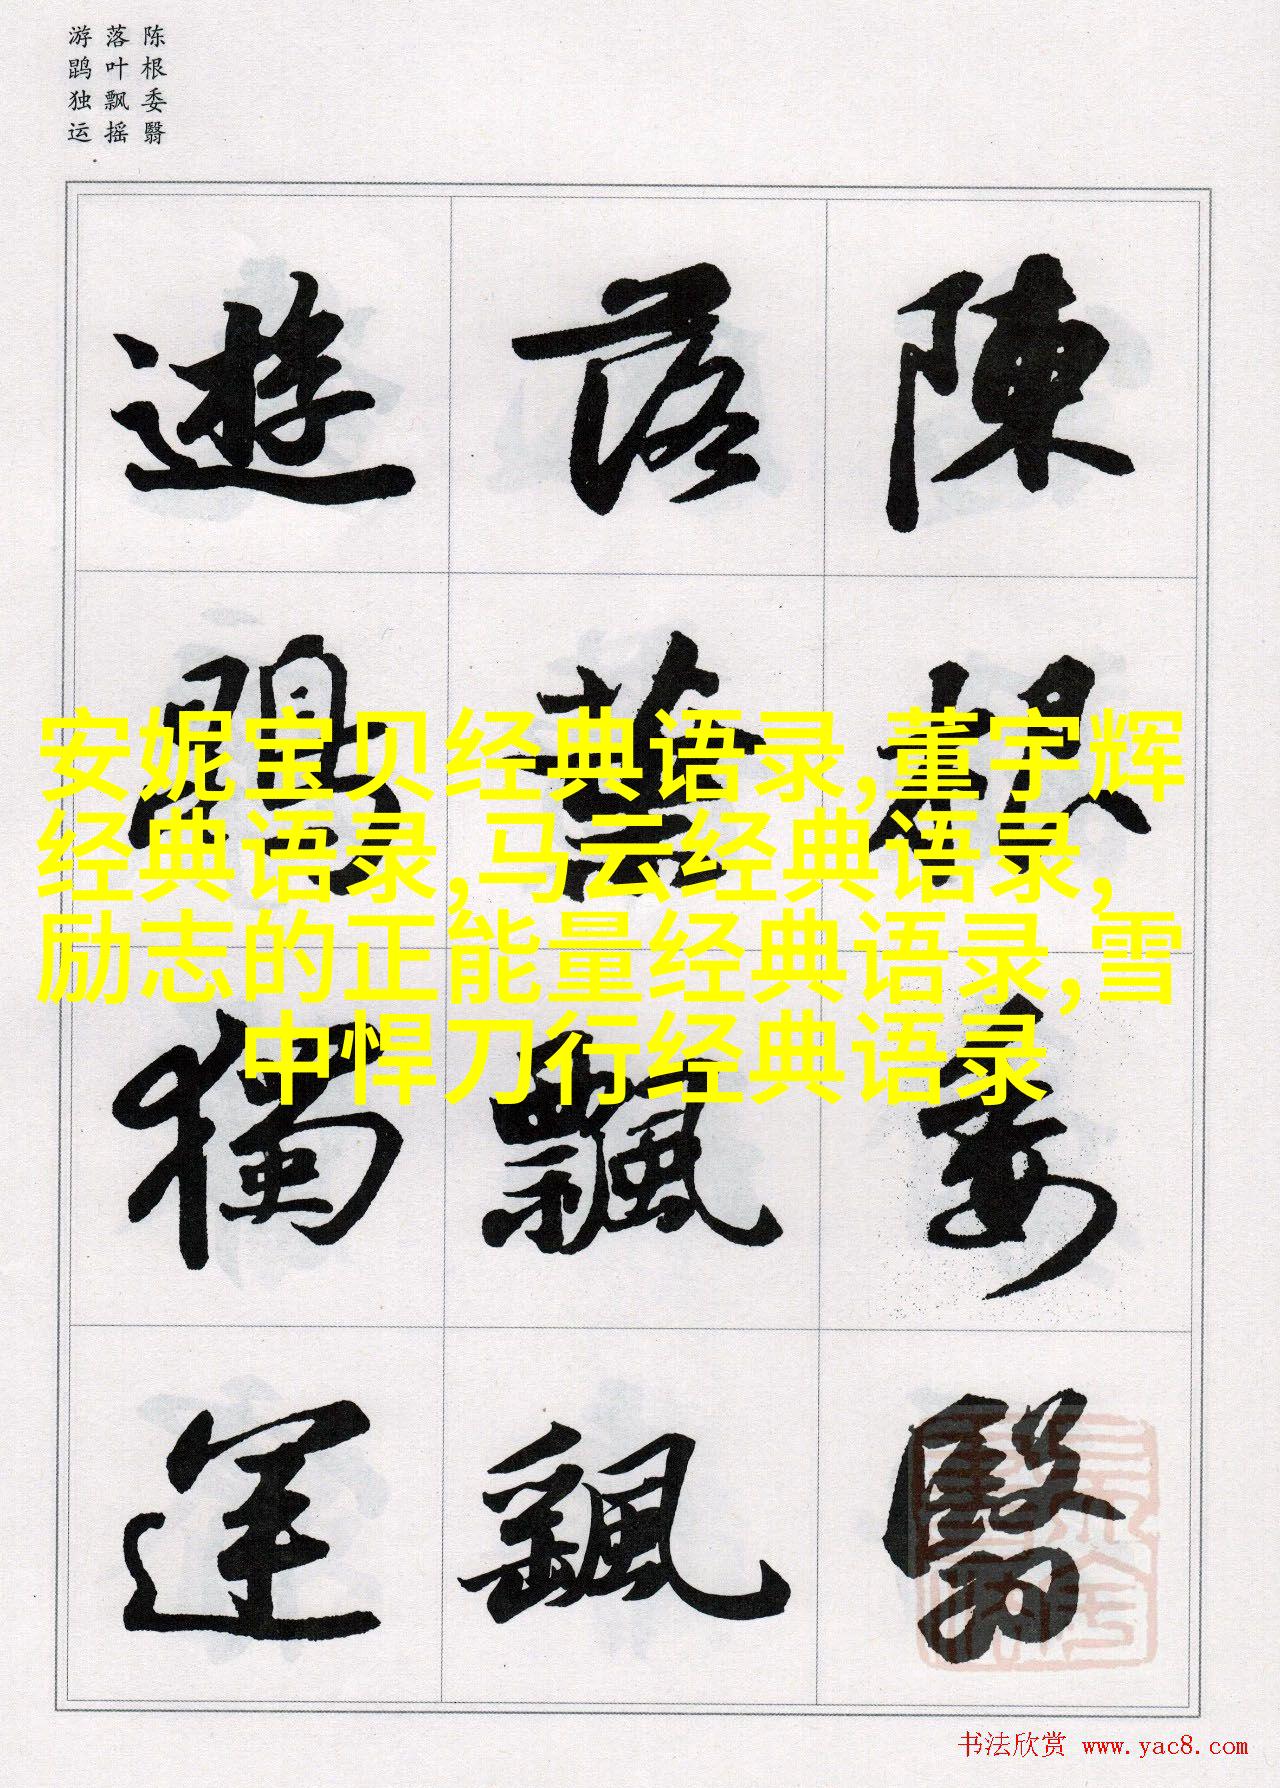 陈根委翳
落叶飘摇
游鹍独运
陳根委翳
落葉飄颻
遊鵾獨運
安妮宝贝经典语录,董宇辉
经典语录,马云经典语录,
励志的正能量经典语录,雪
中悍刀行经典语录
书法欣赏 www.yac8.com